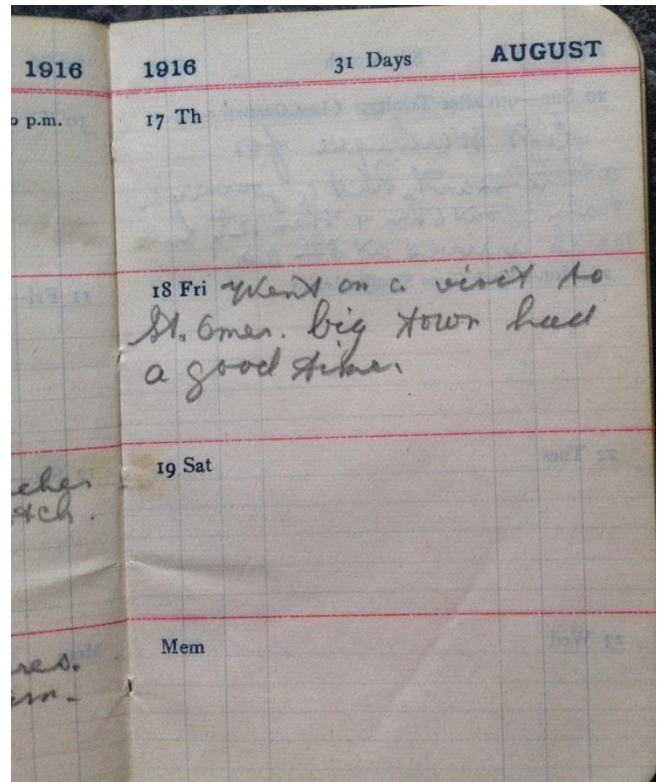 1916
p.m.
ches
tch.
res.
1916 31 Days AUGUST
17 Th
18 Fri Went on a visit to
St. Omer. big town had
a good time.
19 Sat
Mem